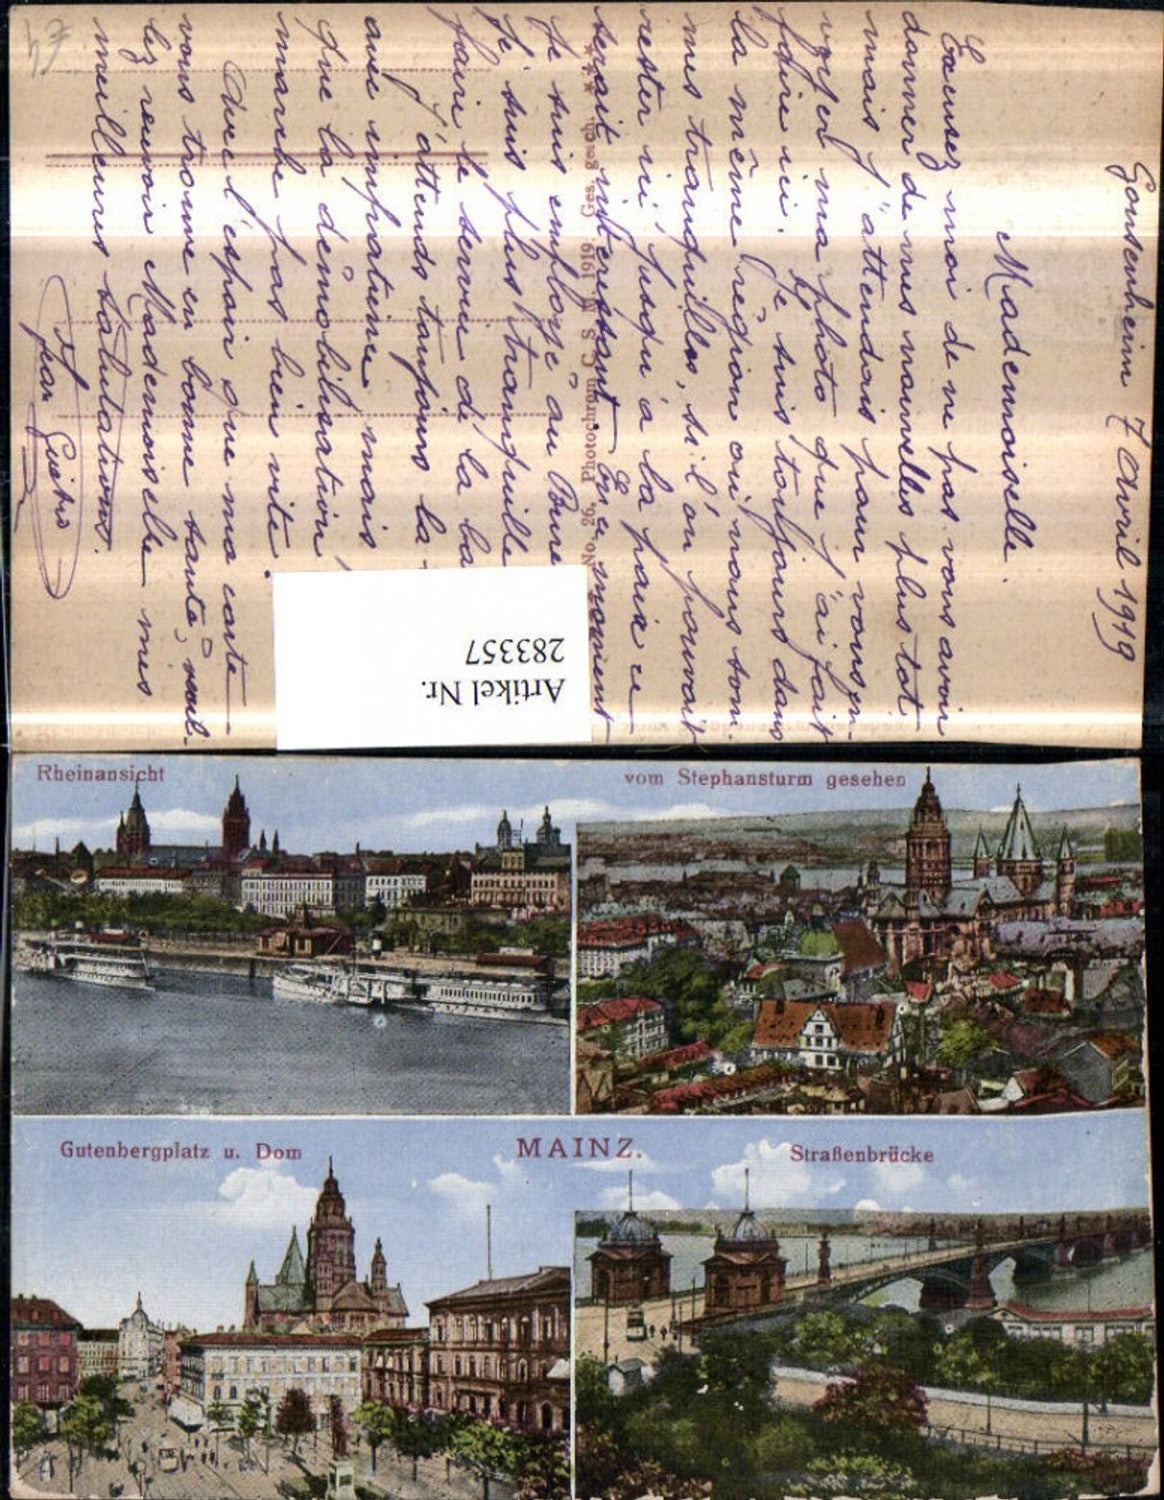 Gonsenheim 7 Avril 1919
Mademoiselle.
Excusez moi de ne pas vous avoir
donner de mes nouvelles plus tot
mais j'attendais pour vous en-
voyer ma photo que j'ai fait
faire ici. Je suis toujours dans
la même région où nous som-
mes tranquilles, si l'on pouvait
rester ici jusqu'a la paix ce
serait intéressant. En ce moment
je suis employe au Bure
je suis plus tranquille
faire le service de la ba
J'attends toujours la
avec impatience mais
que la démobilisation
marche pas bien vite.
Avec l'espoir que ma carte
vous trouve en bonne santé, veuil-
lez recevoir Mademoiselle mes
meilleures salutations.
Jean
No. 26. Photochrom C. S. M. 1919. Ges. gesch.
€4
Artikel Nr.
283357
Rheinansicht
vom Stephansturm gesehen
Gutenbergplatz u. Dom
MAINZ.
Straßenbrücke